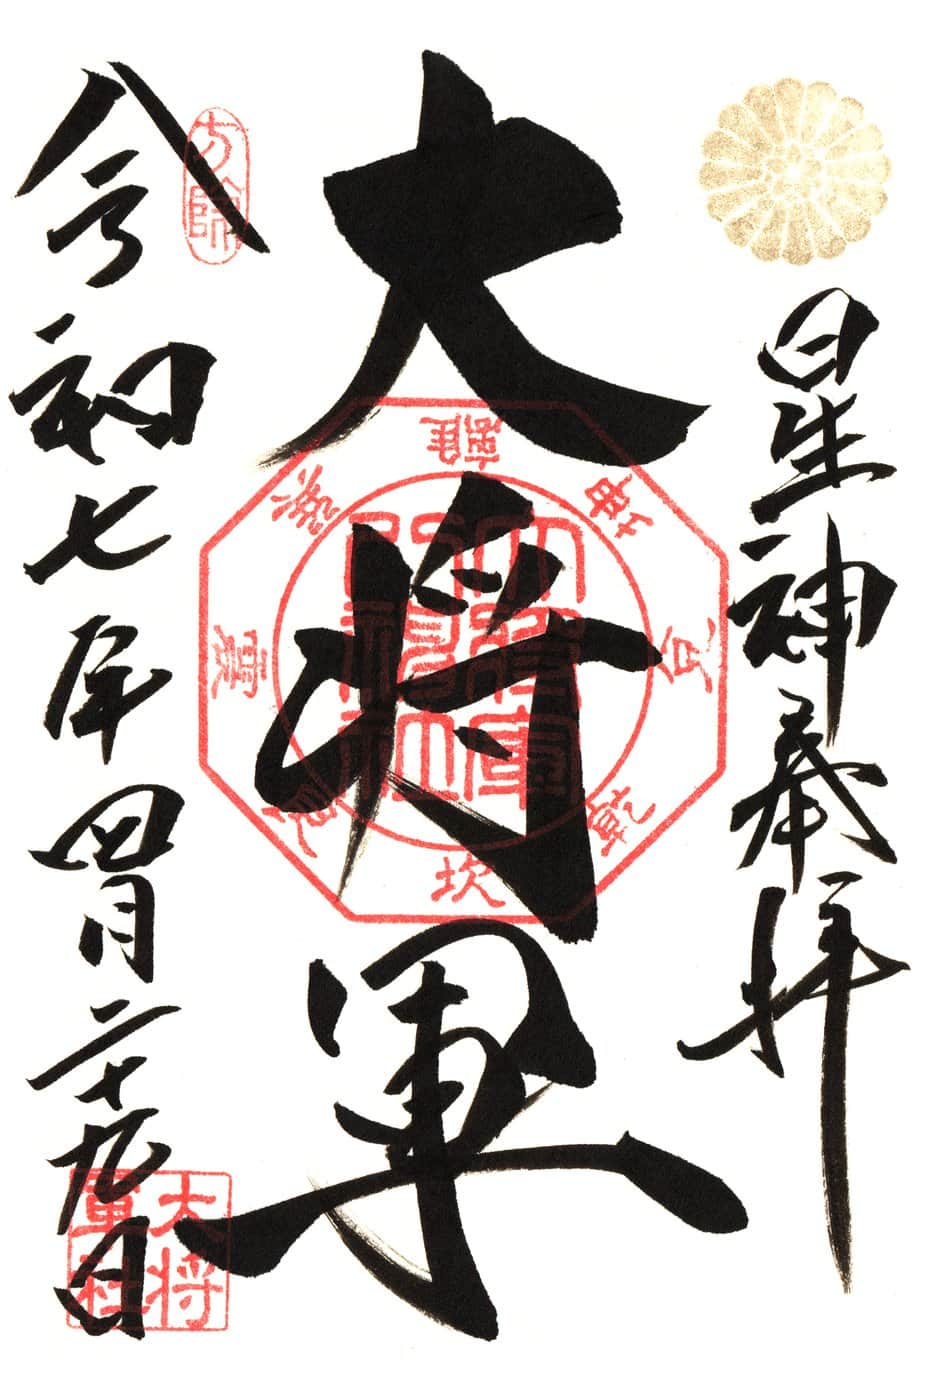 星神奉拝
大将軍
令和七年四月二十九日
離
坤
兌
乾
坎
艮
震
巽
大将
軍社